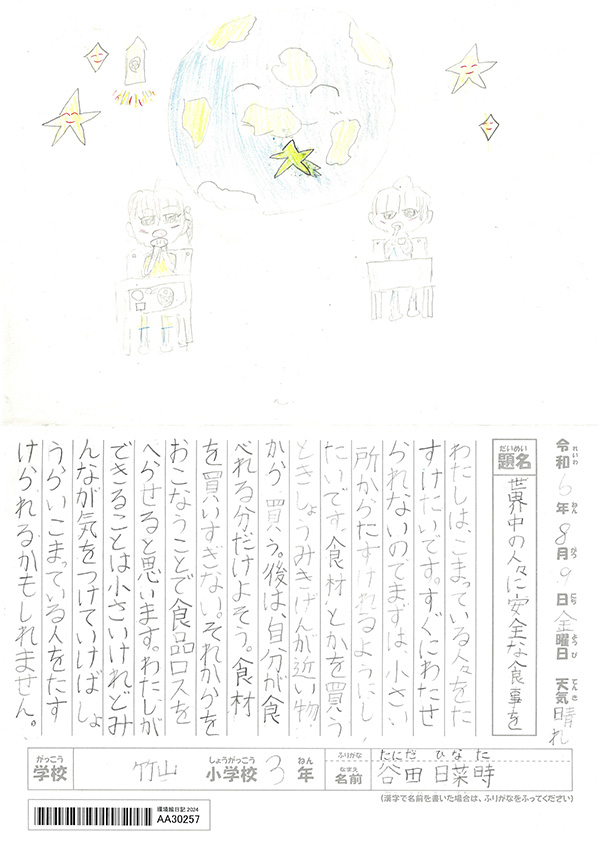 令和6年8月9日金曜日 天気晴れ
れいわ ねん がつ にち ようび てんき
だいめい
題名 世界中の人々に安全な食事を
わたしは、こまっている人々をた
すけたいです。すぐにわたせ
られないのでまずは、小さい
所からたすけれるようにし
たいです。食材とかを買う
ときしょうみきげんが近い物
から買う。後は、自分が食
べれる分だけよそう。食材
を買いすぎない。それから分を
おこなうことで食品ロスを
へらせると思います。わたしが
できることは小さいけれどみ
んなが気をつけていけばしょ
うらいこまっている人をたす
けられるかもしれません。
がっこう しょうがっこう ねん
学校 竹山 小学校 3年
ふりがな たにだ ひなた
なまえ
名前 谷田 日菜時
(漢字で名前を書いた場合は、ふりがなをふってください)
環境絵日記2024
AA30257